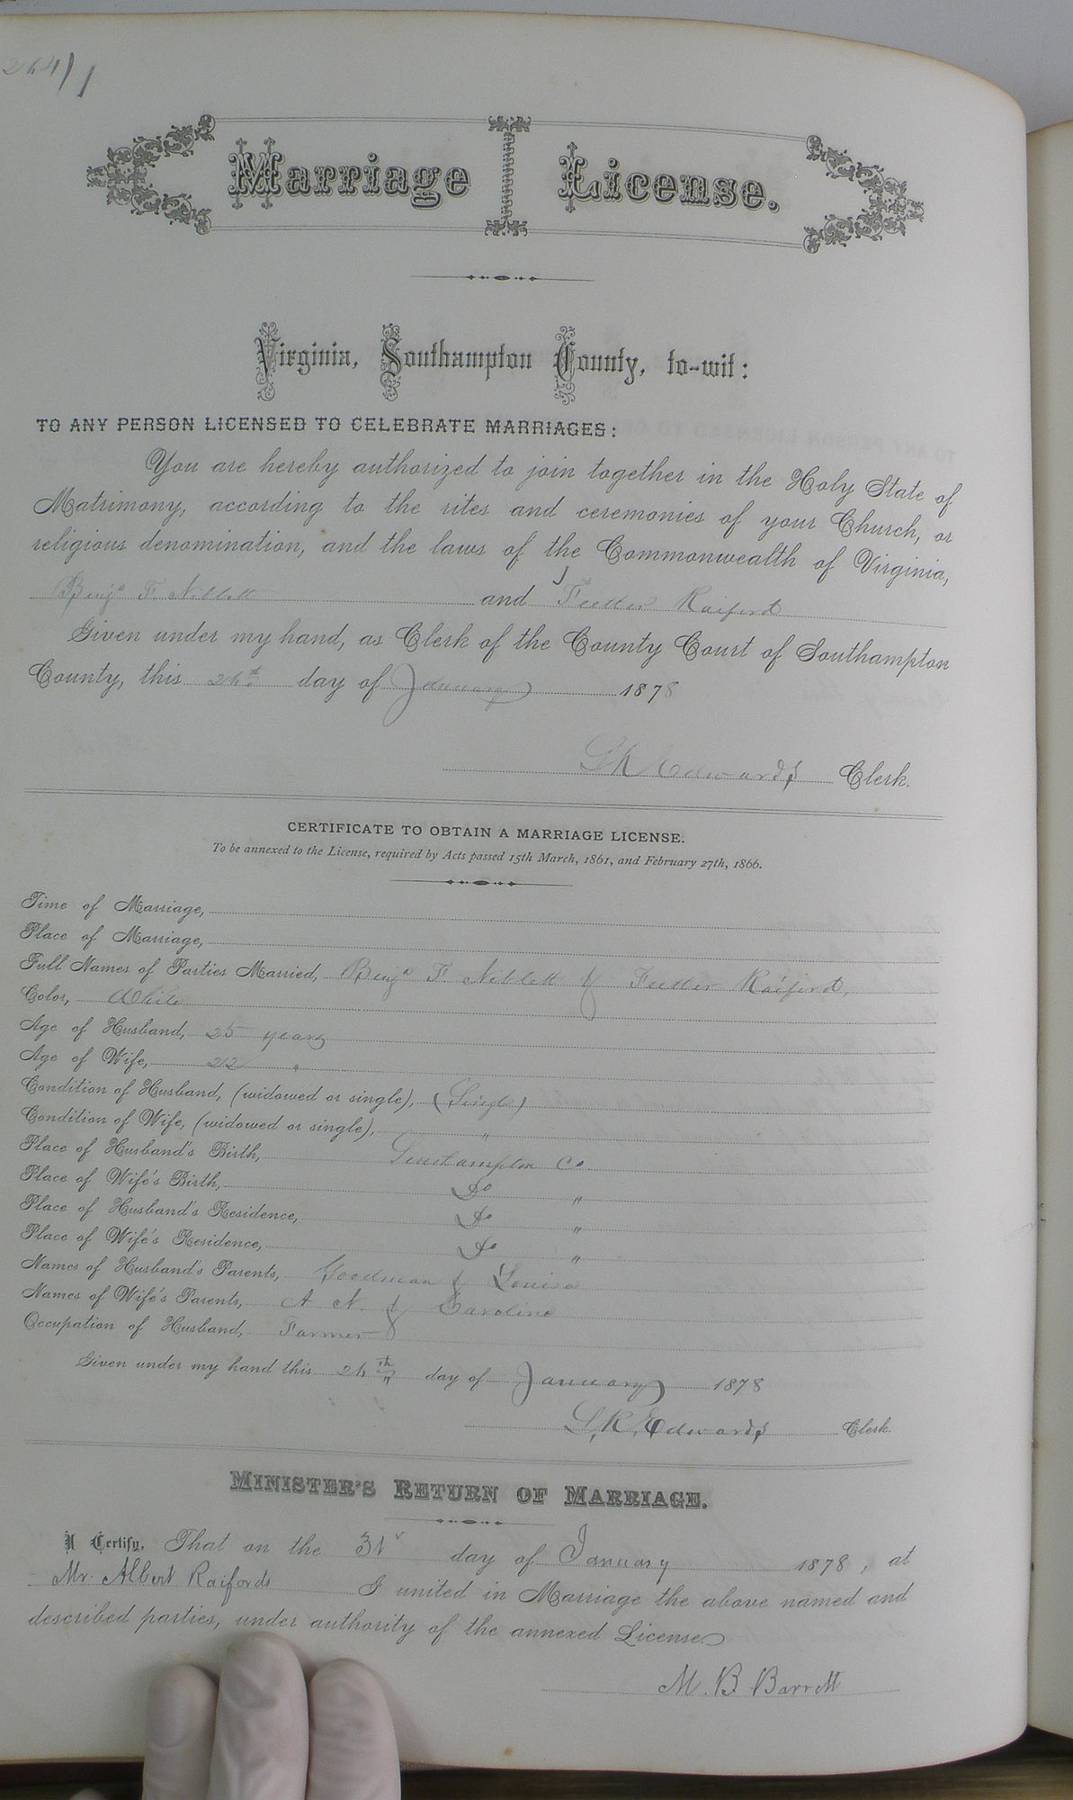 Marriage License.
Virginia, Southampton County, to-wit:
TO ANY PERSON LICENSED TO CELEBRATE MARRIAGES:
You are hereby authorized to join together in the Holy State of
Matrimony, according to the rites and ceremonies of your Church, or
religious denomination, and the laws of the Commonwealth of Virginia,
Benja F. Neblett and Raiford
Given under my hand, as Clerk of the County Court of Southampton
County, this day of January 1878
L R Edwards Clerk.
CERTIFICATE TO OBTAIN A MARRIAGE LICENSE.
To be annexed to the License, required by Acts passed 15th March, 1861, and February 27th, 1866.
Time of Marriage,
Place of Marriage,
Full Names of Parties Married, Benja F. Neblett & Raiford,
Color, White
Age of Husband, 25 years
Age of Wife, 22 "
Condition of Husband, (widowed or single), (Single)
Condition of Wife, (widowed or single), "
Place of Husband's Birth, Southampton Co
Place of Wife's Birth, Do "
Place of Husband's Residence, Do "
Place of Wife's Residence, Do "
Names of Husband's Parents, Goodman & Louisa
Names of Wife's Parents, A. N. & Caroline
Occupation of Husband, Farmer
Given under my hand this day of January 1878
L. R. Edwards Clerk.
MINISTER'S RETURN OF MARRIAGE.
I Certify, That on the 31st day of January 1878, at
Mr. Albert Raifords I united in Marriage the above named and
described parties, under authority of the annexed License.
M. B. Barrett